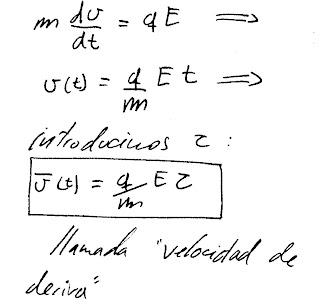 m dv/dt = qE ⟹
v(t) = q/m E t ⟹
introducimos τ :
v̅(t) = q/m E τ
llamada "velocidad de
deriva"